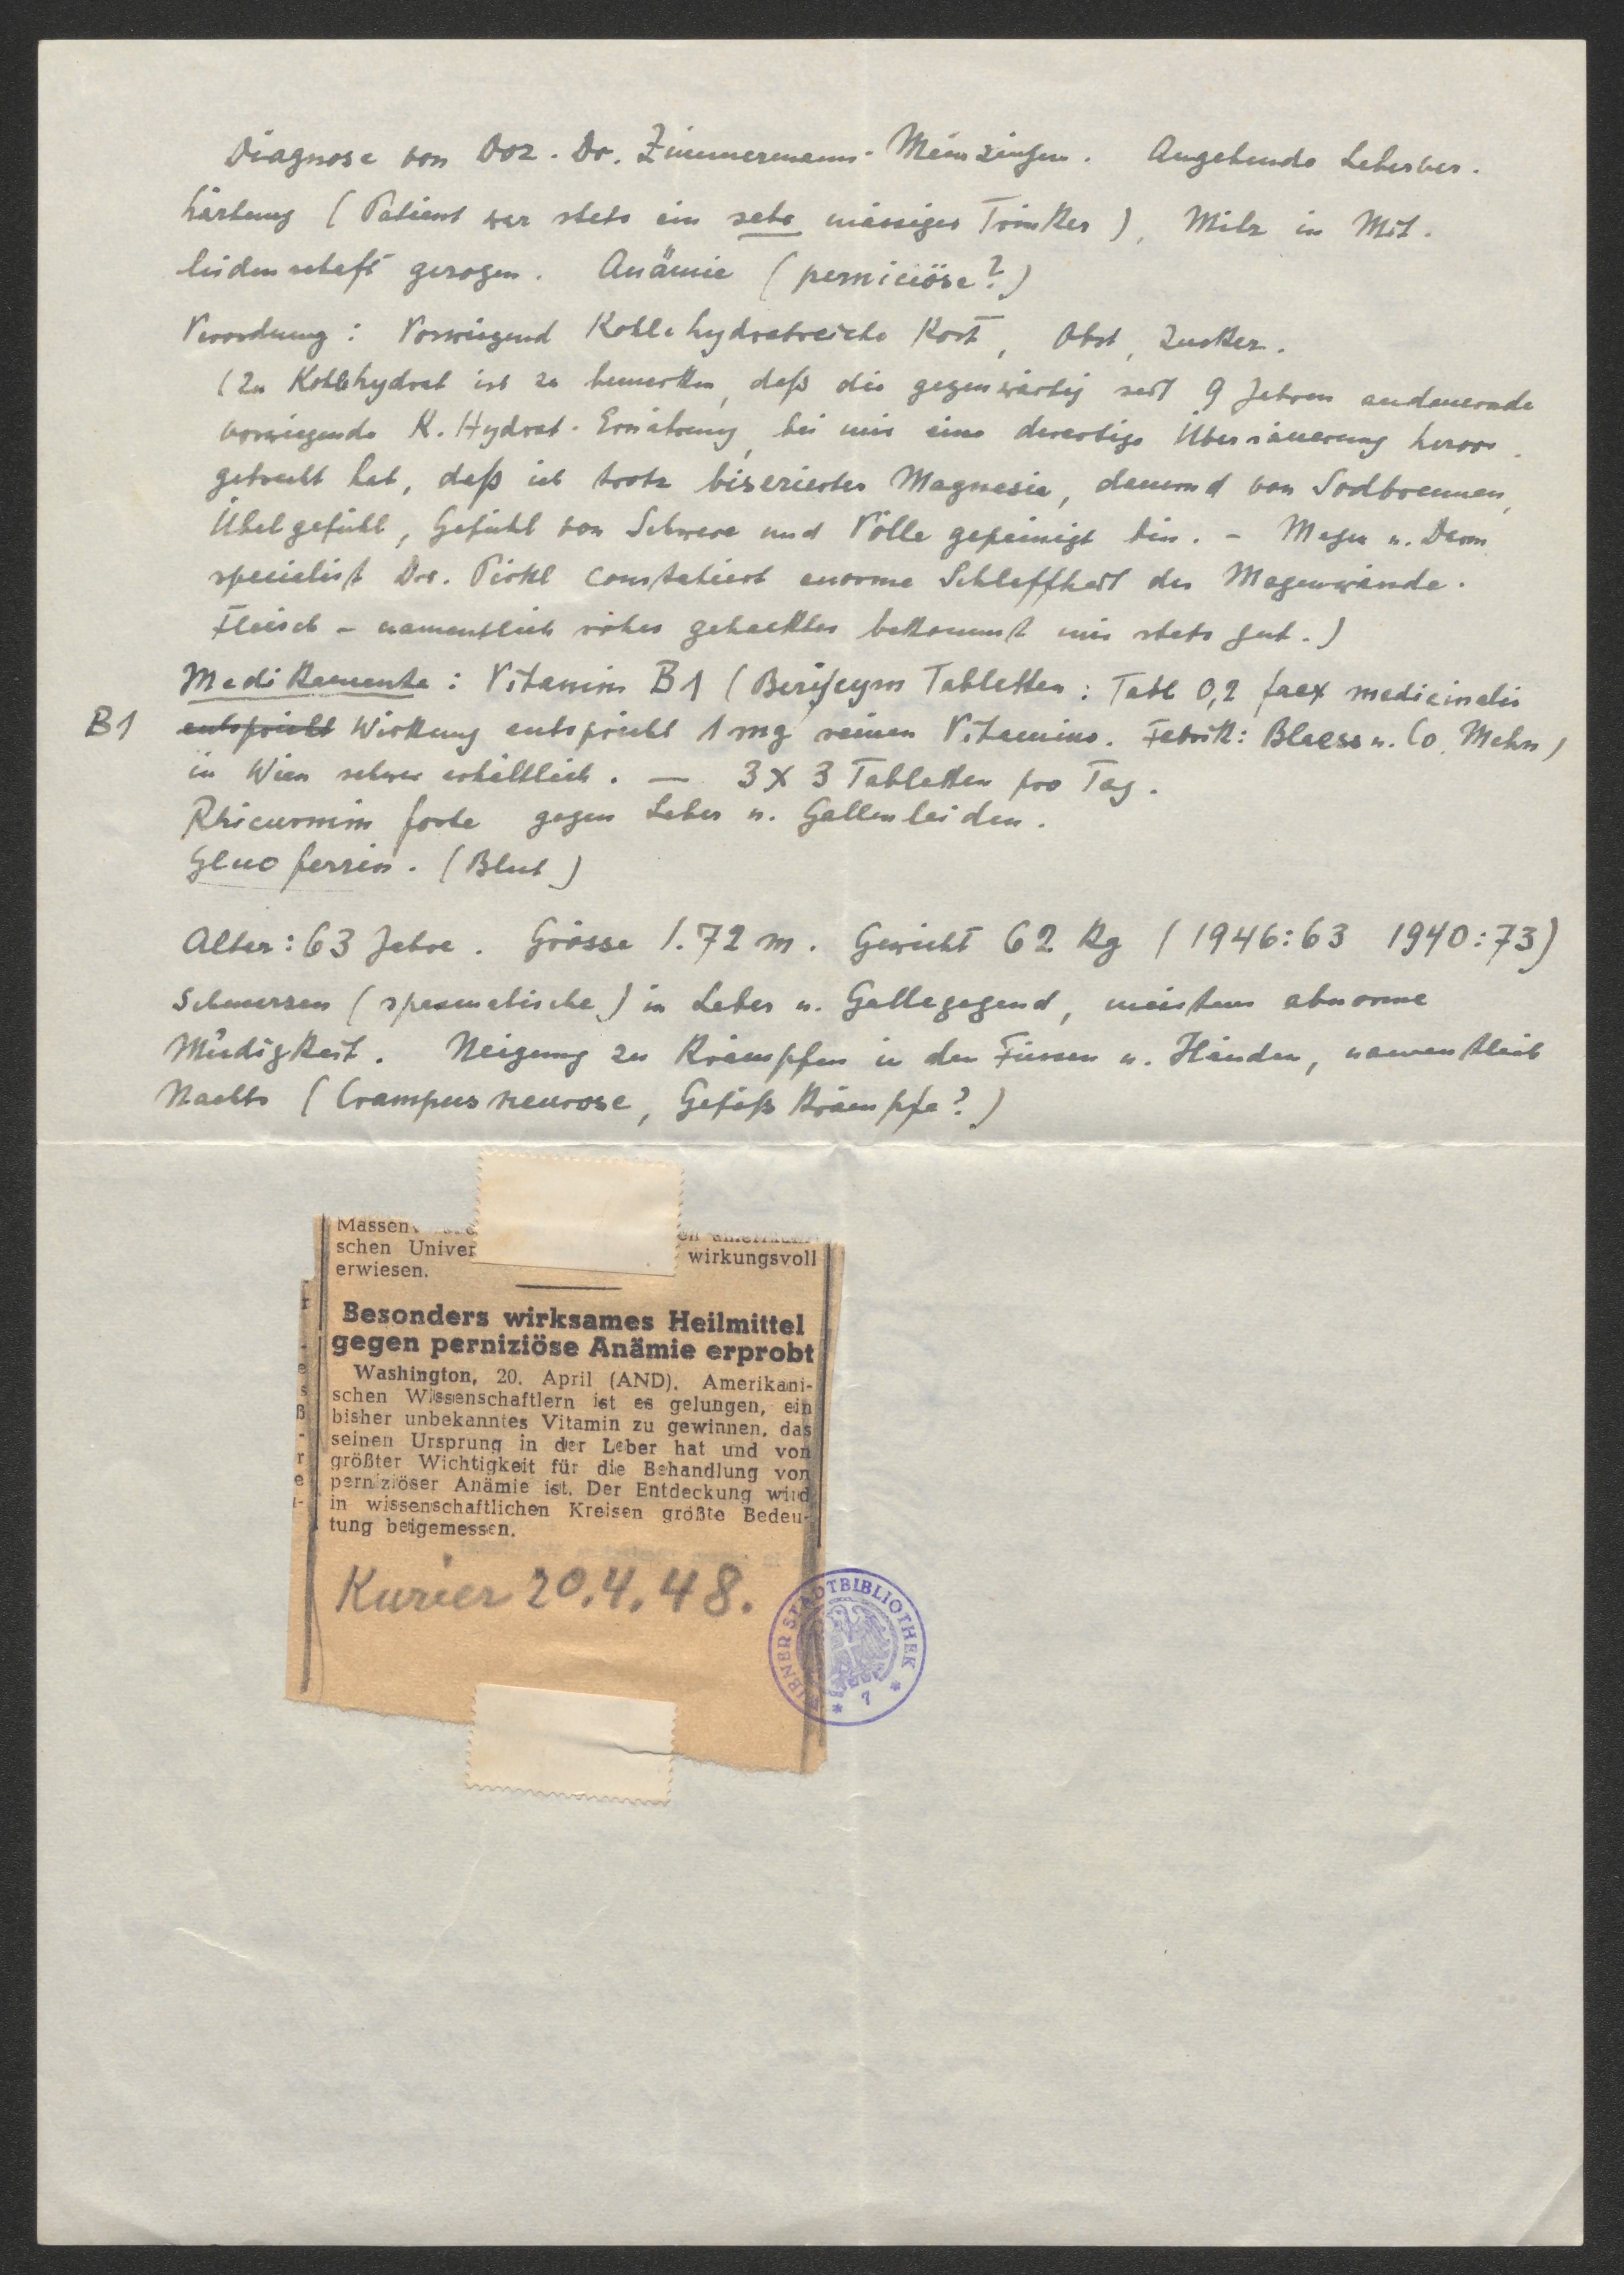 Diagnose von Doz. Dr. Zimmermann-Meinzingen. Angehende Leberver-
härtung (Patient war stets ein sehr mässiger Trinker), Milz in Mit-
leidenschaft gezogen. Anämie (perniciöse?)
Verordnung: Vorwiegend Kohlehydratreiche Kost, Obst, Zucker.
(Zu Kohlehydrat ist zu bemerken, daß die gegenwärtig seit 9 Jahren andauernde
vorwiegende K. Hydrat-Ernährung, bei mir eine derartige Übersäuerung hervor-
gebracht hat, daß ich trotz biserierter Magnesia, dauernd von Sodbrennen,
Übelgefühl, Gefühl von Schwere und Völle gepeinigt bin. - Magen u. Darm
specialist Dr. constatiert enorme Schlaffheit der Magenwände.
Fleisch - namentlich rohes gehacktes bekommt mir stets gut.)
Medikamente: Vitamin B1 ( Tabletten: Tabl 0,2 faex medicinalis
B1 entspricht Wirkung entspricht 1 mg reinen Vitamins. Fabrik: Blaess u. Co, )
in Wien schwer erhältlich. — 3 X 3 Tabletten pro Tag.
forte gegen Leber u. Gallenleiden.
ferrin. (Blut)
Alter: 63 Jahre. Grösse 1.72 m. Gewicht 62 Kg (1946:63 1940:73)
Schmerzen (spasmatische) in Leber u. Gallegegend, meistens abnorme
Müdigkeit. Neigung zu Krämpfen in den Füssen u. Händen, namentlich
Nachts (Crampusneurose, Gefäßkrämpfe?)
Massen
schen Univer wirkungsvoll
erwiesen.
Besonders wirksames Heilmittel
gegen perniziöse Anämie erprobt
Washington, 20. April (AND). Amerikani-
schen Wissenschaftlern ist es gelungen, ein
bisher unbekanntes Vitamin zu gewinnen, das
seinen Ursprung in der Leber hat und von
größter Wichtigkeit für die Behandlung von
perniziöser Anämie ist. Der Entdeckung wird
in wissenschaftlichen Kreisen größte Bedeu-
tung beigemessen.
Kurier 20.4.48.
WIENER STADTBIBLIOTHEK
* 7 *